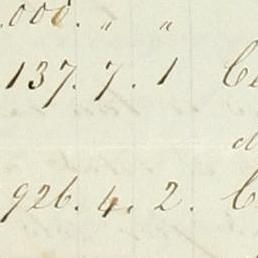 .000. " "
137. 7. 1
926. 4. 2.